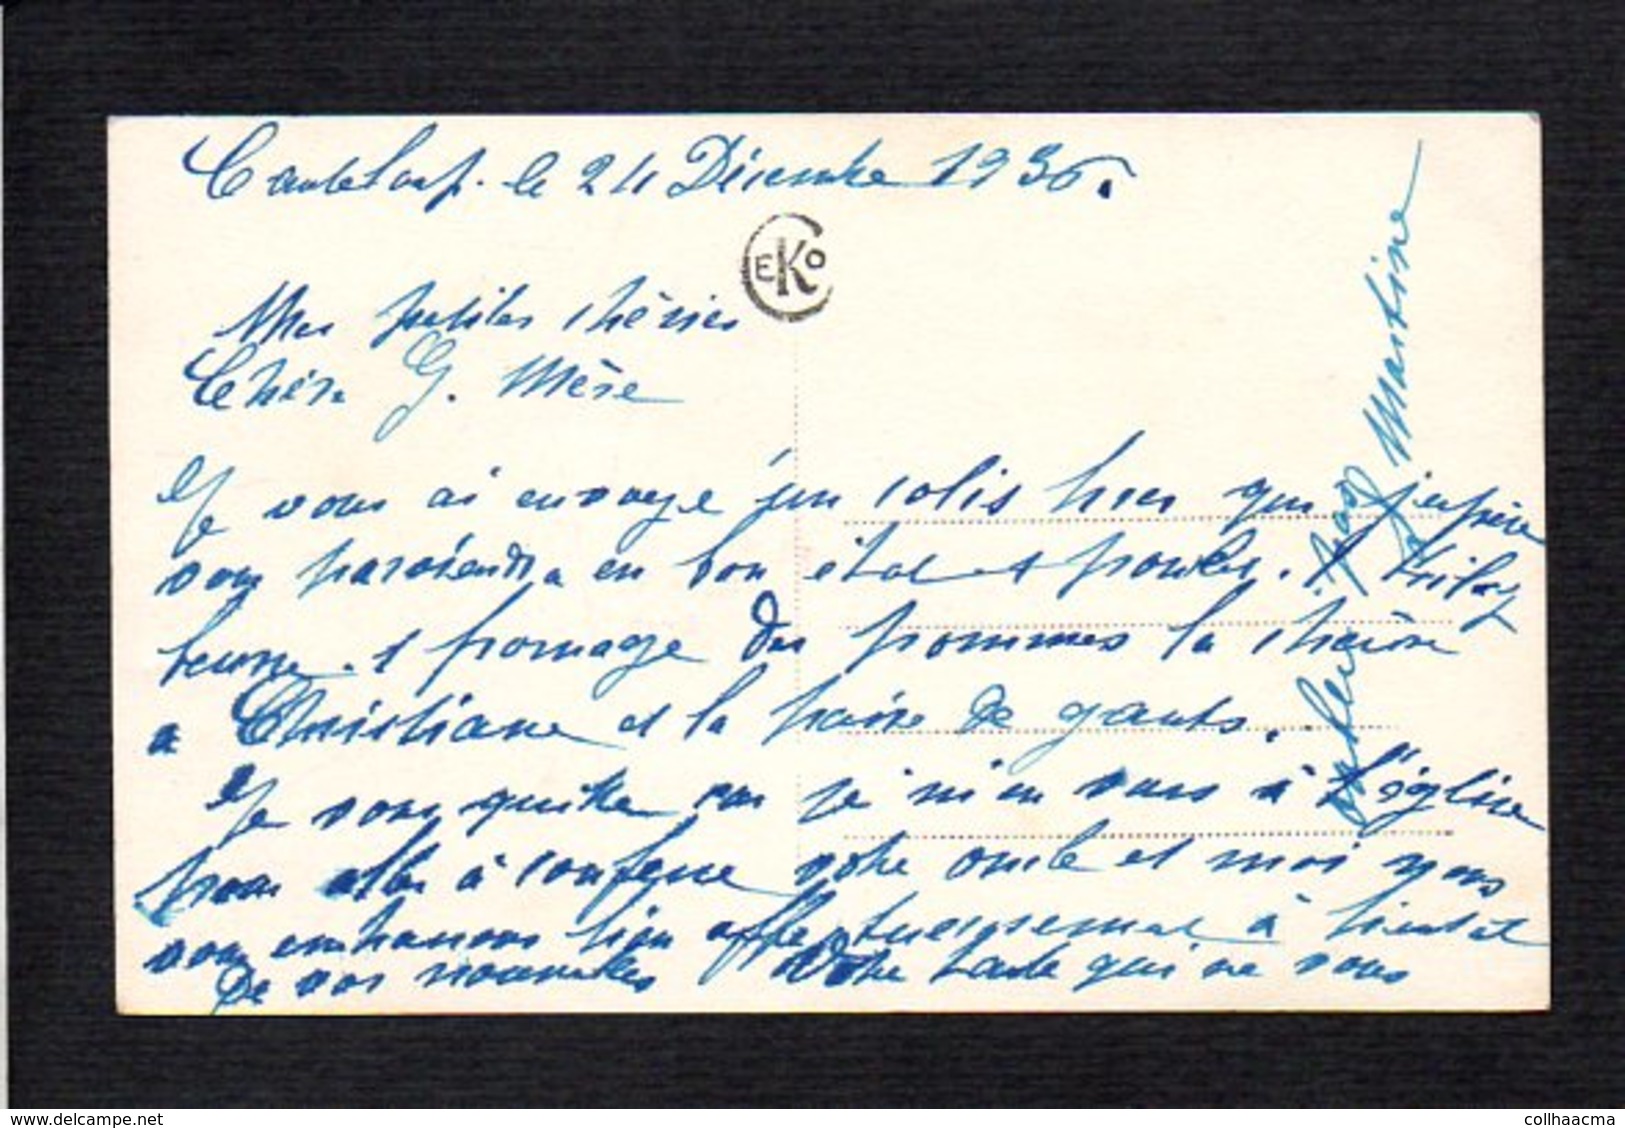 Canteloup. le 24 Décembre 1936.
CEKO
Mes petites chéries
Chère G. Mère
Je vous ai envoyé un colis hier que j'espère
vous parviendra en bon état et poulet. 1
beurre. 1 fromage des pommes la
a Christiane et la paire de gants.
Je vous quitte car je m'en vais à l'église
pour aller à confesse votre oncle et moi nous
vous embrassons bien affectueusement à bientôt
De vos nouvelles Votre tante qui ne vous
oublie pas Martine
www.delcampe.net
collhaacma